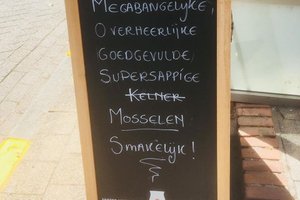 MEGABANGELIJKE,
OVERHEERLIJKE
GOEDGEVULDE,
SUPERSAPPIGE
KELNER
MOSSELEN
SMAKELIJK!